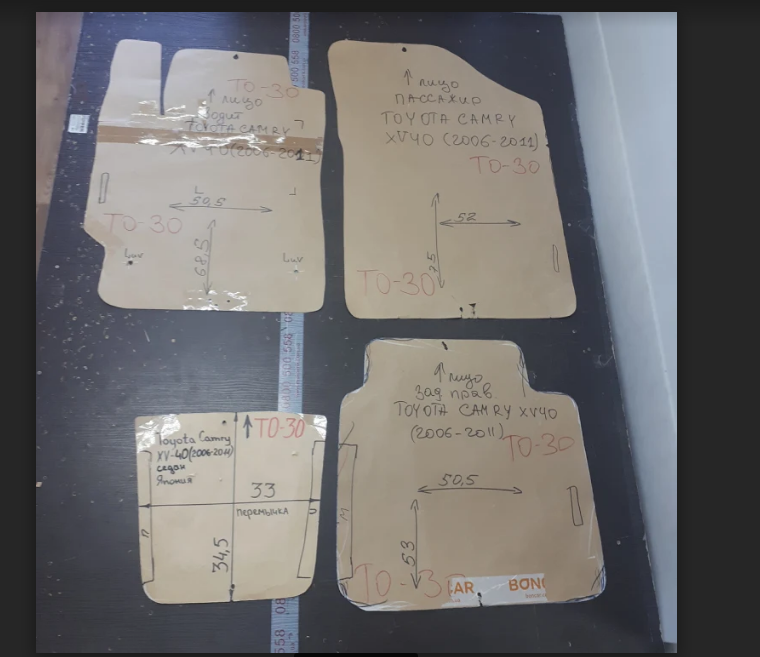 TO-30
↑ лицо
водит
TOYOTA CAMRY
XV40(2006-2011)
50,5
TO-30
68,5
Luv
Luv
↑ лицо
ПАССАЖИР
TOYOTA CAMRY
XV40 (2006-2011)
TO-30
52
75
TO-30
↑ TO-30
Toyota Camry
XV-40(2006-2011)
седан
Япония
33
перемычка
34,5
П
↑ лицо
Зад прав
TOYOTA CAMRY XV40
(2006-2011)
TO-30
50,5
53
M
TO-3
AR BONG
500 558 0800 500 558
0800 500 558
558 08